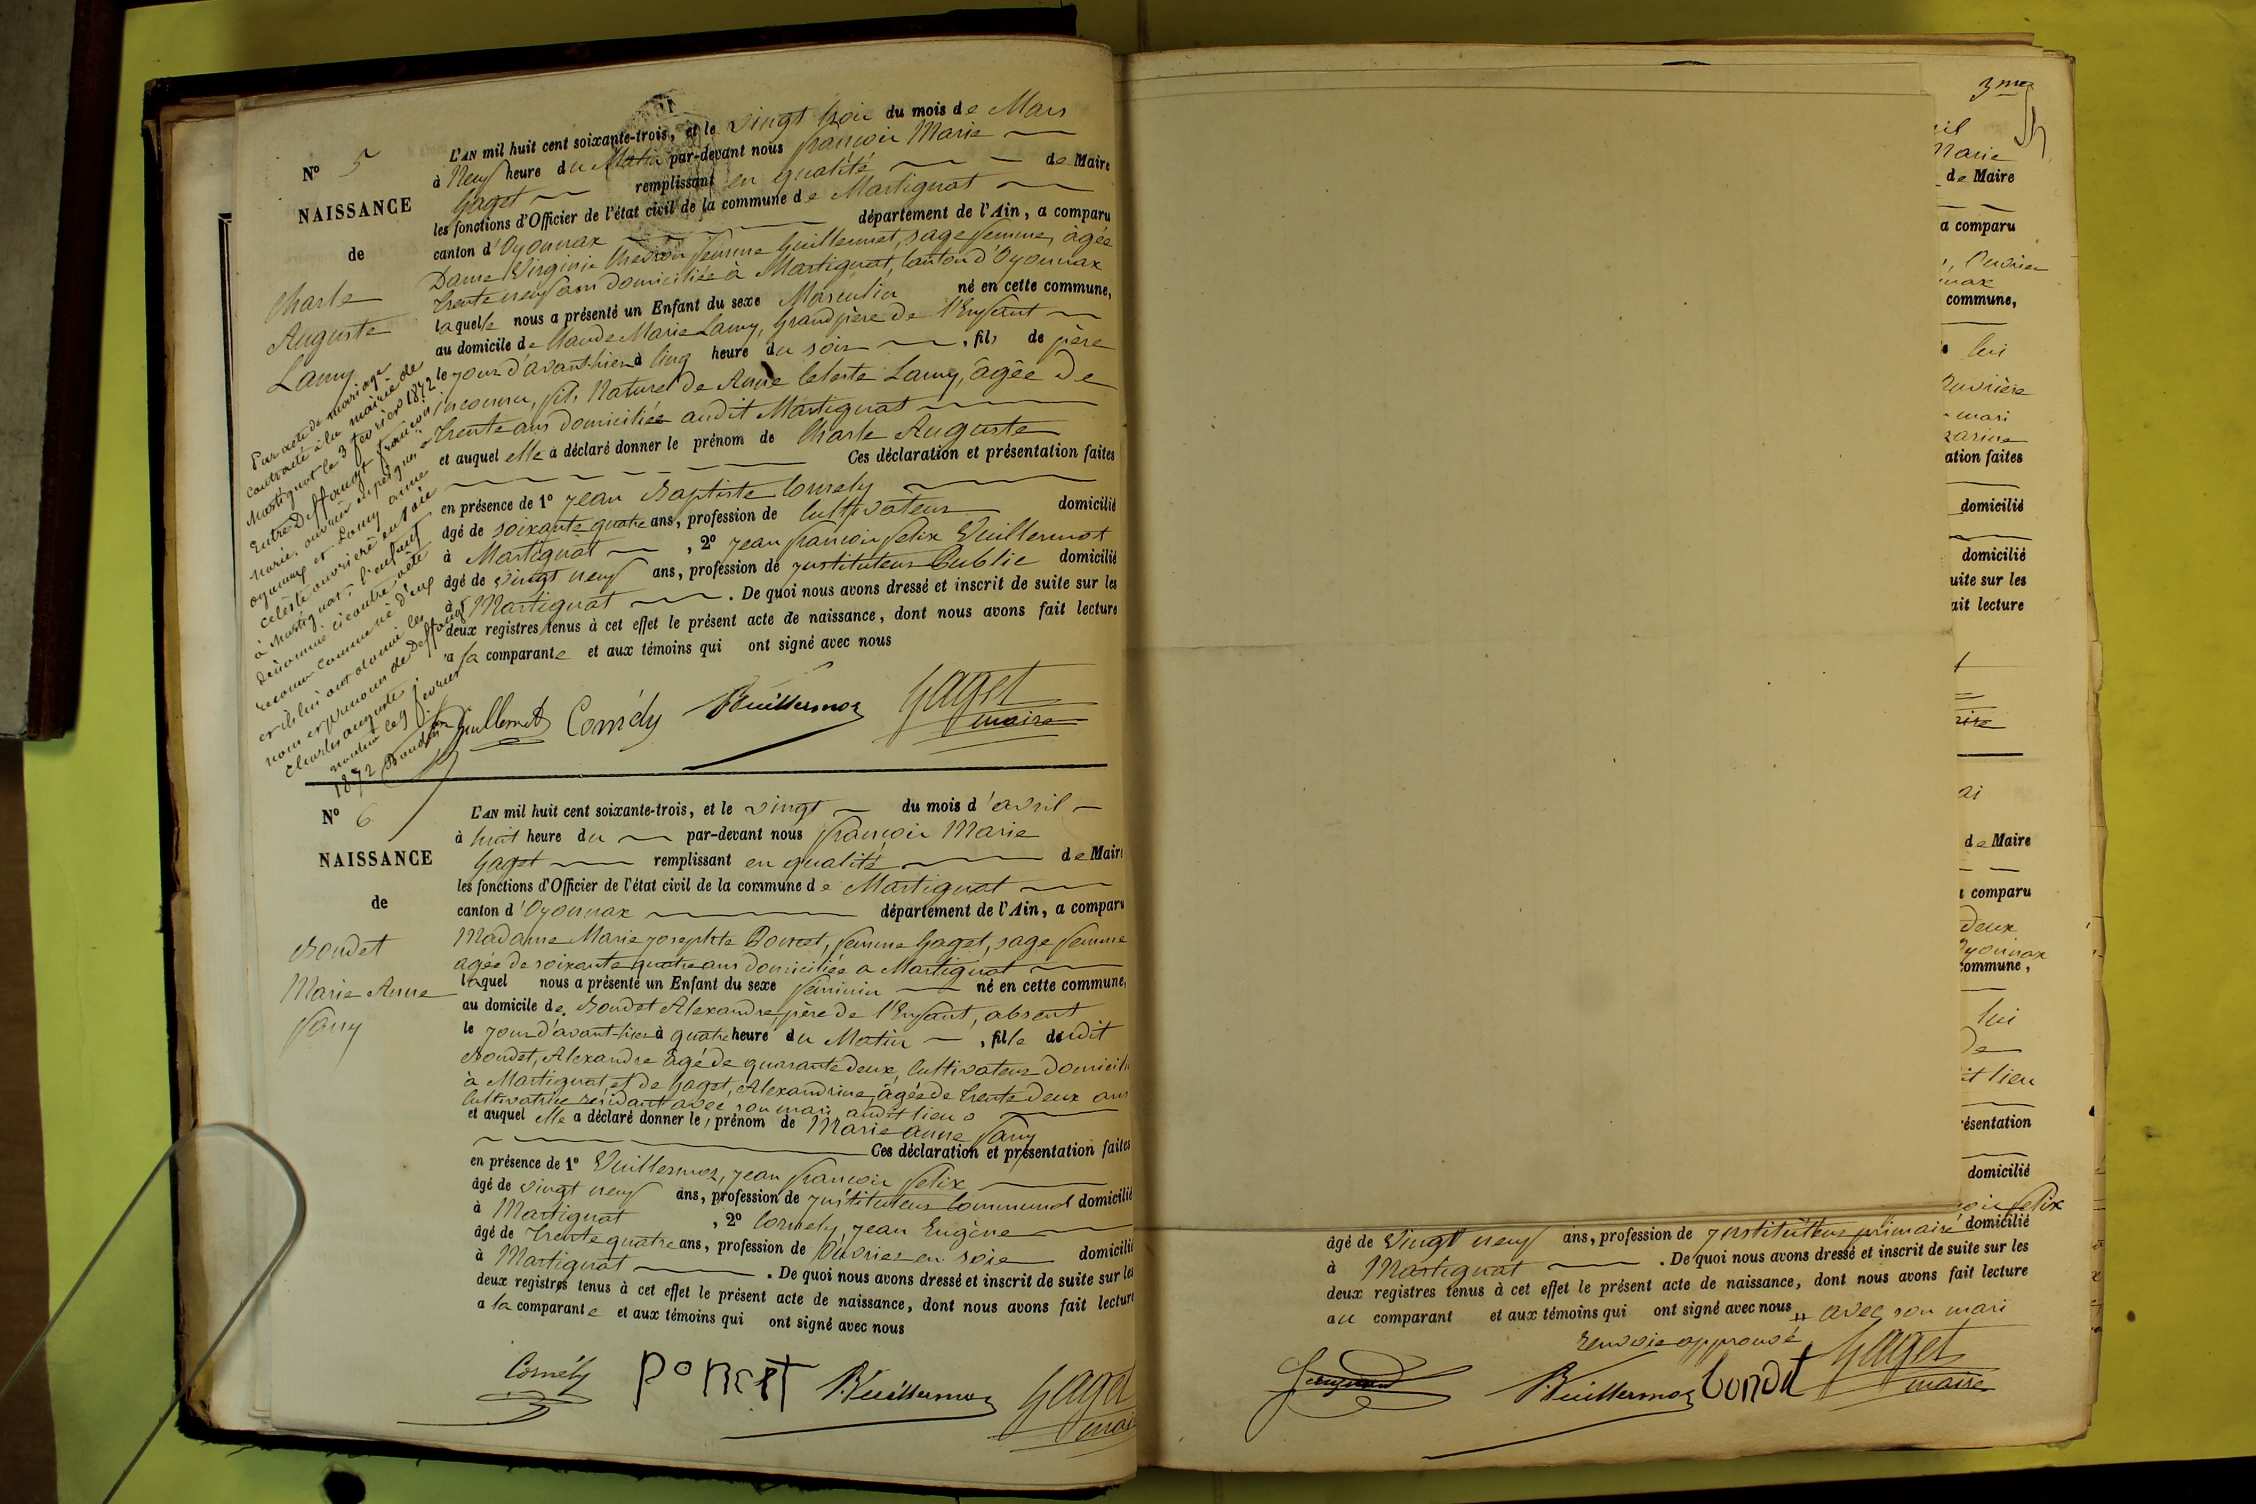 N° 5
NAISSANCE
de
Charle
Auguste
Lamy
L'AN mil huit cent soixante-trois, et le vingt trois du mois de Mars
à Neuf heure du Matin par-devant nous françois Marie
Gaget remplissant en qualité de Maire
les fonctions d'Officier de l'état civil de la commune de Martignat
canton d'Oyonnax département de l'Ain, a comparu
Dame Virginie femme Guillermet, sage femme, âgée
trente neuf ans domiciliée à Martignat, Canton d'Oyonnax
laquelle nous a présenté un Enfant du sexe Masculin né en cette commune,
au domicile de Claude Marie Lamy, Grand père de l'Enfant
le jour d'avant hier à Cinq heure du soir, fils de père
inconnu, fils Naturel de Anne Celeste Lamy, âgée de
trente ans domiciliée audit Martignat
et auquel elle a déclaré donner le prénom de Charle Auguste
Ces déclaration et présentation faites
en présence de 1° Jean Baptiste Cornely
âgé de soixante quatre ans, profession de Cultivateur domicilié
à Martignat, 2° Jean françois felix Vuillermoz
âgé de vingt neuf ans, profession de Instituteur Public domicilié
à Martignat. De quoi nous avons dressé et inscrit de suite sur les
deux registres tenus à cet effet le présent acte de naissance, dont nous avons fait lecture
a la comparante et aux témoins qui ont signé avec nous
Par acte de mariage
contracté à la mairie de
Martignat le 3 fevrier 1872
entre Deffaugt francois
marie, ouvrier en peignes à
oyonnax et Lamy anne
celeste ouvrière en soie
à Martignat, l'enfant
dénommé ci contre a été
reconnu comme né d'eux
et ils lui ont donné les
nom et prénoms de Deffaugt
Charles auguste.
le 9 fevrier
1872
fe Guillermet Cornély Vuillermoz Gaget
maire
N° 6
NAISSANCE
de
Bondet
Marie Anne
fany
L'AN mil huit cent soixante-trois, et le vingt du mois d'avril
à huit heure du par-devant nous françois Marie
Gaget remplissant en qualité de Maire
les fonctions d'Officier de l'état civil de la commune de Martignat
canton d'Oyonnax département de l'Ain, a comparu
Madame Marie josephte Poncet, femme Gaget, sage femme
agée de soixante quatre ans domiciliée a Martignat
laquel nous a présenté un Enfant du sexe féminin né en cette commune,
au domicile de Bondet Alexandre, père de l'Enfant, absent
le jour d'avant-hier à quatre heure du Matin, fille dudit
Bondet, Alexandre âgé de quarante deux, Cultivateur domicilié
à Martignat et de Gaget, Alexandrine, âgée de trente deux ans
Cultivatrice résidant avec son mari audit lieu
et auquel elle a déclaré donner le, prénom de Marie anne fany
Ces déclaration et présentation faites
en présence de 1° Vuillermoz, jean françois felix
âgé de vingt neuf ans, profession de Instituteur Communal domicilié
à Martignat, 2° Cornely, jean Eugène
âgé de trente quatre ans, profession de Ouvrier en soie domicilié
à Martignat. De quoi nous avons dressé et inscrit de suite sur les
deux registres tenus à cet effet le présent acte de naissance, dont nous avons fait lecture
a la comparante et aux témoins qui ont signé avec nous
Cornély Poncet Vuillermoz Gaget
mai
3me
ril
Marie
de Maire
a comparu
, Ouvrier
nax
commune,
lui
Ouvrière
mari
ation faites
domicilié
domicilié
uite sur les
ait lecture
ai
de Maire
a comparu
deux
Oyonnax
commune,
lui
de
it lieu
résentation
domicilié
felix
âgé de vingt neuf ans, profession de Instituteur primaire domicilié
à Martignat. De quoi nous avons dressé et inscrit de suite sur les
deux registres tenus à cet effet le présent acte de naissance, dont nous avons fait lecture
au comparant et aux témoins qui ont signé avec nous avec son mari
renvoie approuvé
Vuillermoz Bondet Gaget
maire